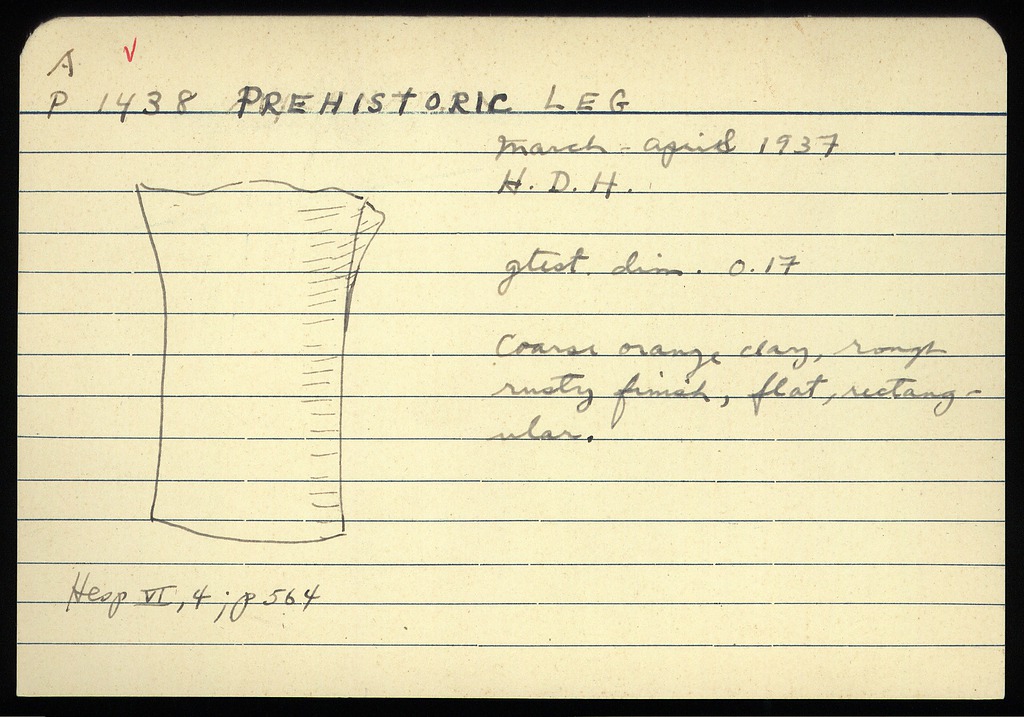 A
P 1438 PREHISTORIC LEG
March - April 1937
H. D. H.
gtest. dim. 0.17
Coarse orange clay, rough
rusty finish, flat, rectang-
ular.
Hesp VI, 4; p 564